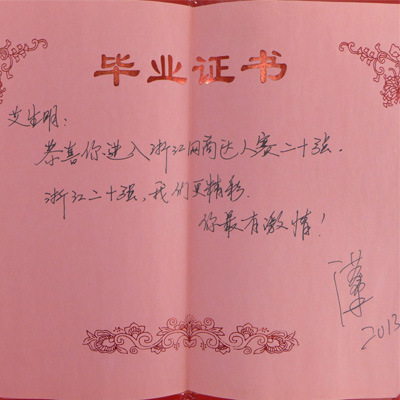 毕业证书
艾生明：
恭喜你进入浙江网商达人赛二十强.
浙江二十强，我们更精彩.
你最有激情！
2013